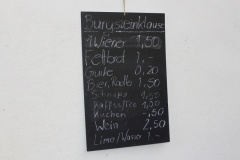 Burgsteinklause
1 Wiener 1,50
Fettbrot 1,-
Gurke 0,20
Bier, Radb. 1,50
Schnaps 1,50
Kaffee/Tee 1,50
Kuchen -,50
Wein 2,50
Limo/Wasser 1,-